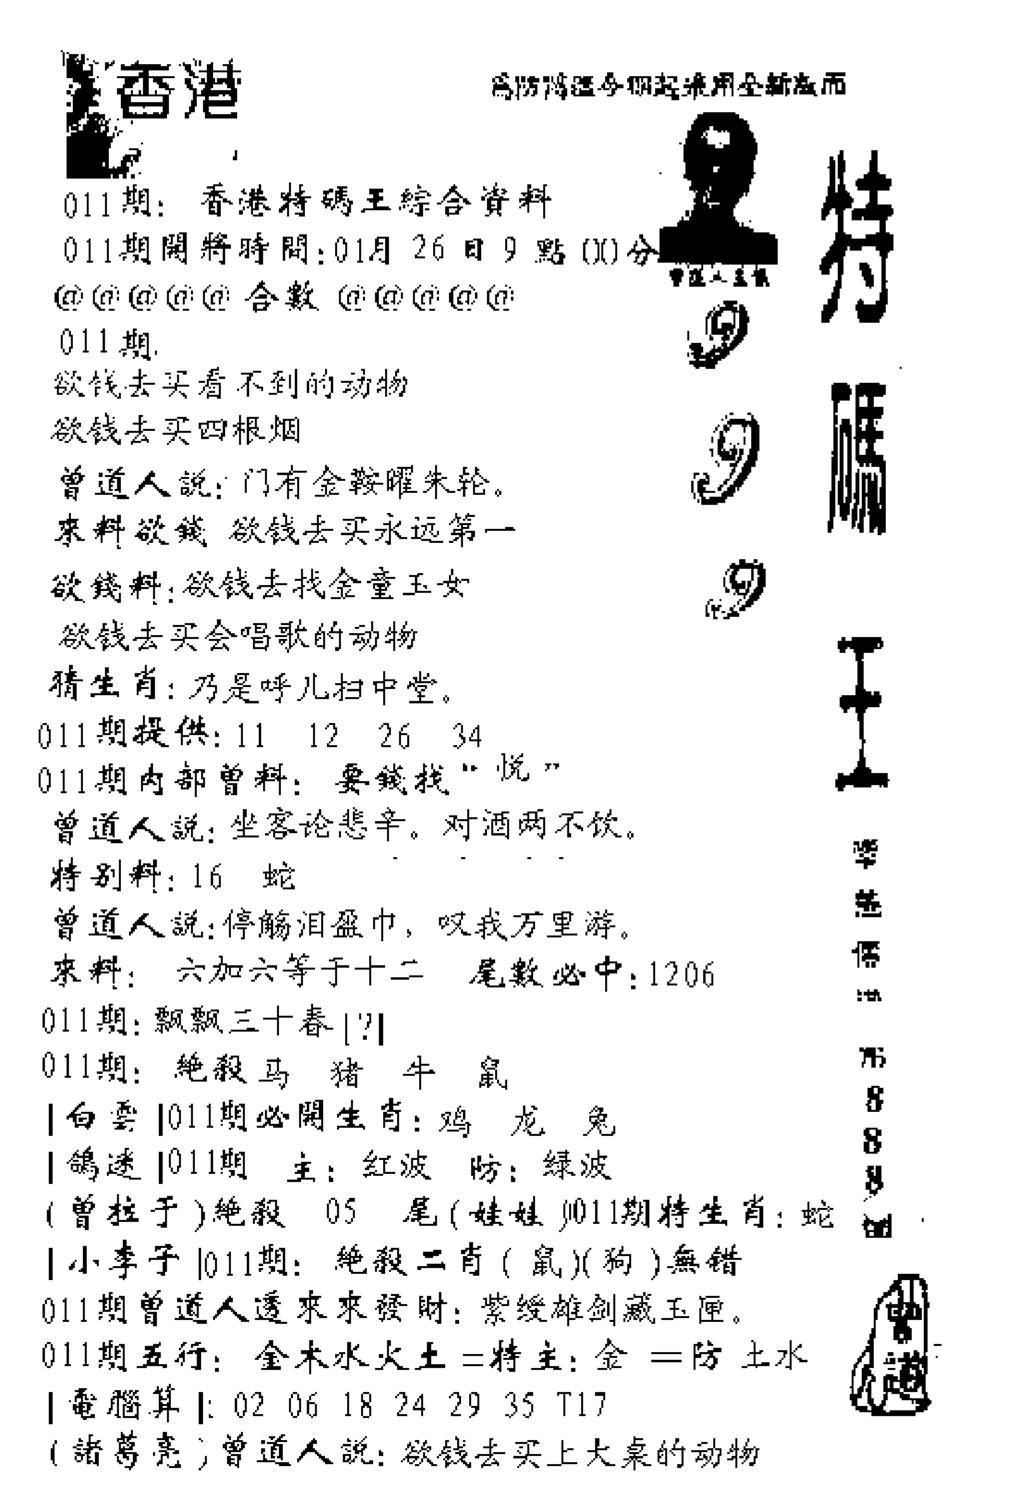 香港
為防濫今期起采用全新版面
011期: 香港特碼王綜合資料
011期開將時間:01月 26日 9 點00分
@@@@@ 合數 @@@@@
011期.
欲钱去买看不到的动物
欲钱去买四根烟
曾道人説: 门有金鞍曜朱轮。
來料欲錢 欲钱去买永远第一
欲錢料:欲钱去找金童玉女
欲钱去买会唱歌的动物
猜生肖: 乃是呼儿扫中堂。
011期提供: 11 12 26 34
011期内部曾料: 要錢找“悦”
曾道人説: 坐客论悲辛。对酒两不饮。
特别料: 16 蛇
曾道人説:停觞泪盈巾, 叹我万里游。
來料: 六加六等于十二 尾數必中:1206
011期: 飘飘三十春|?|
011期: 絶殺马 猪 牛 鼠
|白雲|011期必開生肖: 鸡 龙 兔
|鴿迷|011期 主: 红波 防: 绿波
(曾拉于)絶殺 05 尾(娃娃)011期特生肖: 蛇
|小李子|011期: 絶殺二肖(鼠)(狗)無错
011期曾道人透來來發財: 紫绶雄剑藏玉匣。
011期五行: 金木水火土=特主: 金 =防 土水
|電腦算|: 02 06 18 24 29 35 T17
(諸葛亮)曾道人説: 欲钱去买上大桌的动物
特碼王
999
888
曾道